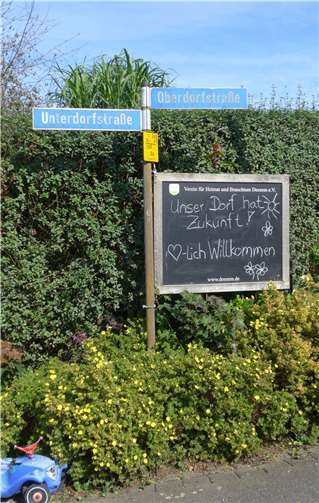 Unterdorfstraße
Oberdorfstraße
Verein für Heimat und Brauchtum Deesem e.V.
Unser Dorf hat
Zukunft!
♡-lich Willkommen